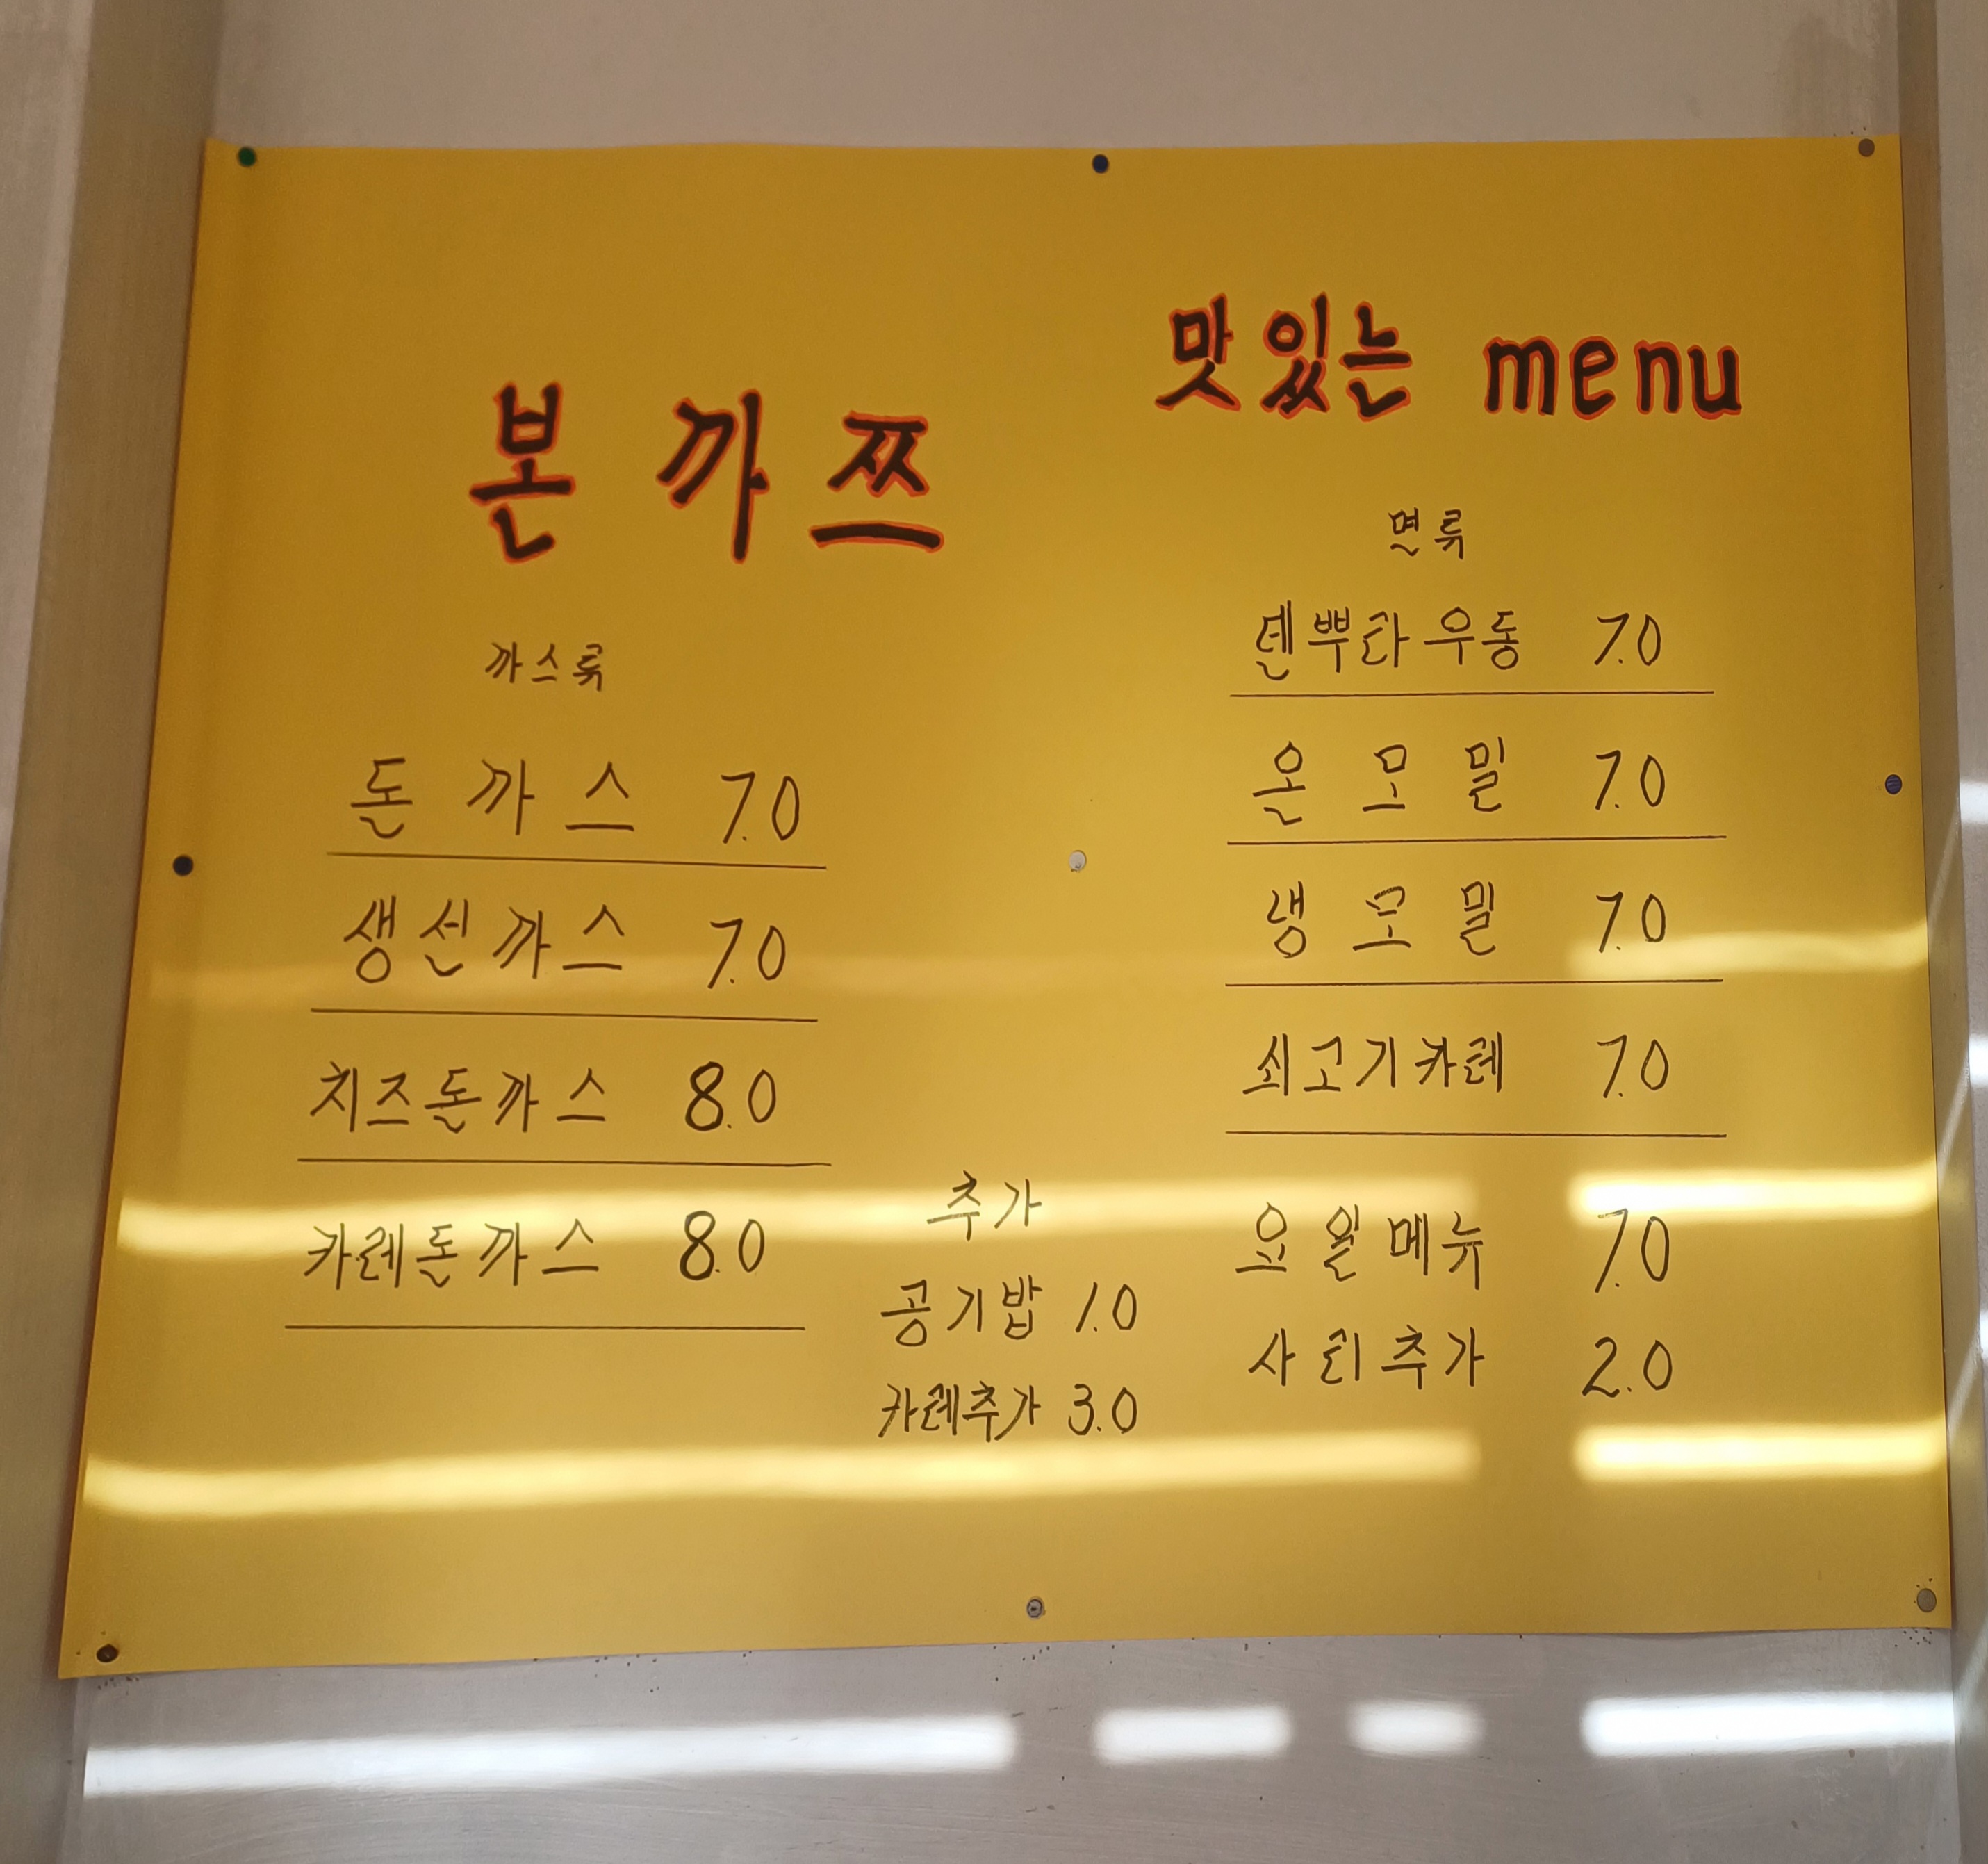 본까쯔
까스류
돈까스 7.0
생선까스 7.0
치즈돈까스 8.0
카레돈까스 8.0
추가
공기밥 1.0
카레추가 3.0
맛있는 menu
면류
덴뿌라우동 7.0
온모밀 7.0
냉모밀 7.0
쇠고기카레 7.0
요일메뉴 7.0
사리추가 2.0